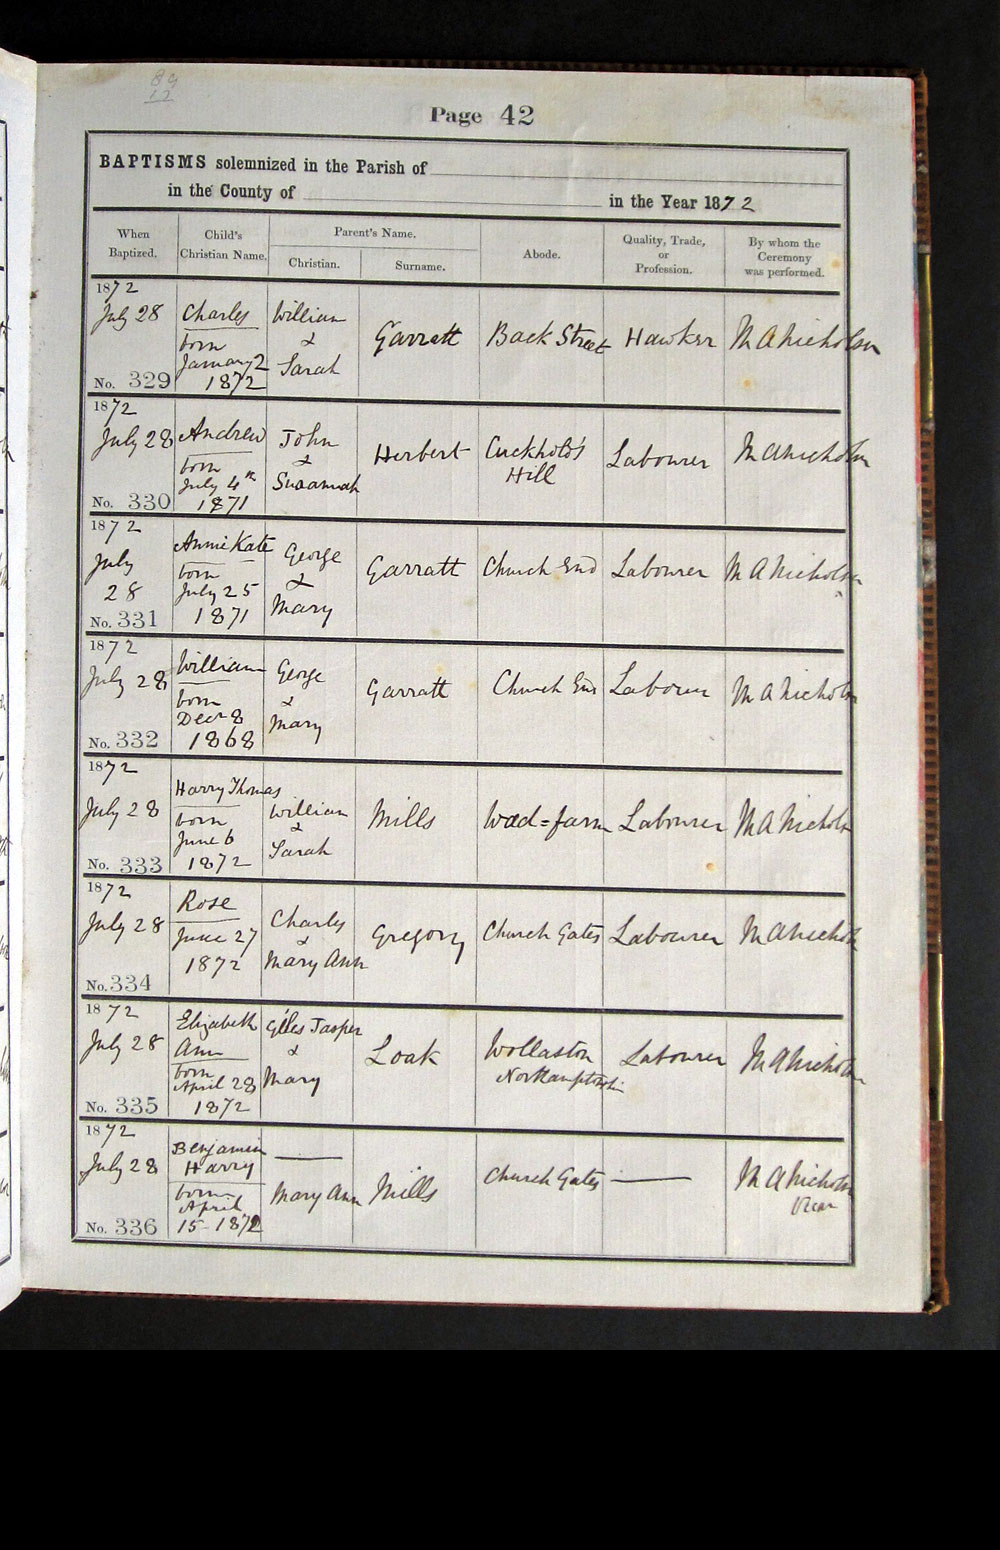 Page 42
BAPTISMS solemnized in the Parish of
in the County of in the Year 1872
When Baptized.
Child's Christian Name.
Parent's Name.
Christian.
Surname.
Abode.
Quality, Trade, or Profession.
By whom the Ceremony was performed.
1872
July 28
No. 329
Charles
born
January 2
1872
William
&
Sarah
Garratt
Back Street
Hawker
M A Nicholson
1872
July 28
No. 330
Andrew
born
July 4th
1871
John
&
Susannah
Herbert
Cuckhold's
Hill
Labourer
M A Nicholson
1872
July
28
No. 331
Annie Kate
born
July 25
1871
George
&
Mary
Garratt
Church End
Labourer
M A Nicholson
1872
July 28
No. 332
William
born
Decr 8
1868
George
&
Mary
Garratt
Church End
Labourer
M A Nicholson
1872
July 28
No. 333
Harry Thomas
born
June 6
1872
William
&
Sarah
Mills
Labourer
M A Nicholson
1872
July 28
No. 334
Rose
June 27
1872
Charles
&
Mary Ann
Gregory
Church Gates
Labourer
M A Nicholson
1872
July 28
No. 335
Elizabeth
Ann
born
April 28
1872
Giles Jasper
&
Mary
Loak
Wollaston
Labourer
M A Nicholson
1872
July 28
No. 336
Benjamin
Harry
born
April
15 - 1872
Mary Ann
Mills
Church Gates
M A Nicholson
Vicar